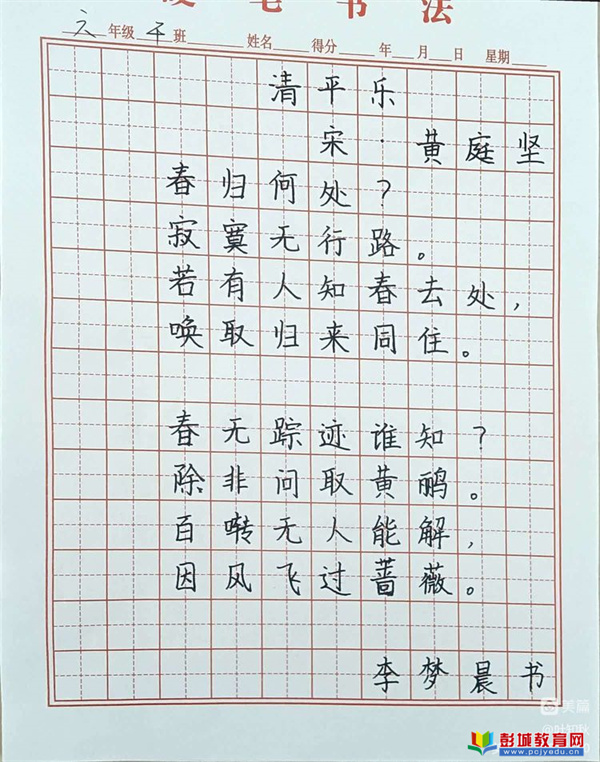 硬笔书法
六年级 千班 姓名 得分 年 月 日 星期
清平乐
宋·黄庭坚
春归何处?
寂寞无行路。
若有人知春去处,
唤取归来同住。
春无踪迹谁知?
除非问取黄鹂。
百啭无人能解,
因风飞过蔷薇。
李梦晨书
美篇
彭城教育网
www.pcjyedu.cn